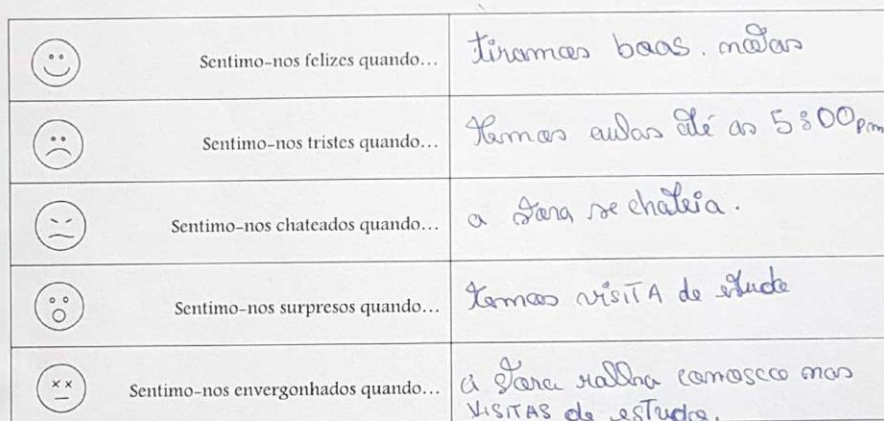 Sentimo-nos felizes quando... tiramos boas. notas
Sentimo-nos tristes quando... temos aulas até as 5:00pm
Sentimo-nos chateados quando... a Sara se chateia.
Sentimo-nos surpresos quando... temos visiTA de estudo
Sentimo-nos envergonhados quando... a Sara ralha conosco nas
VISITAS de esTudo.